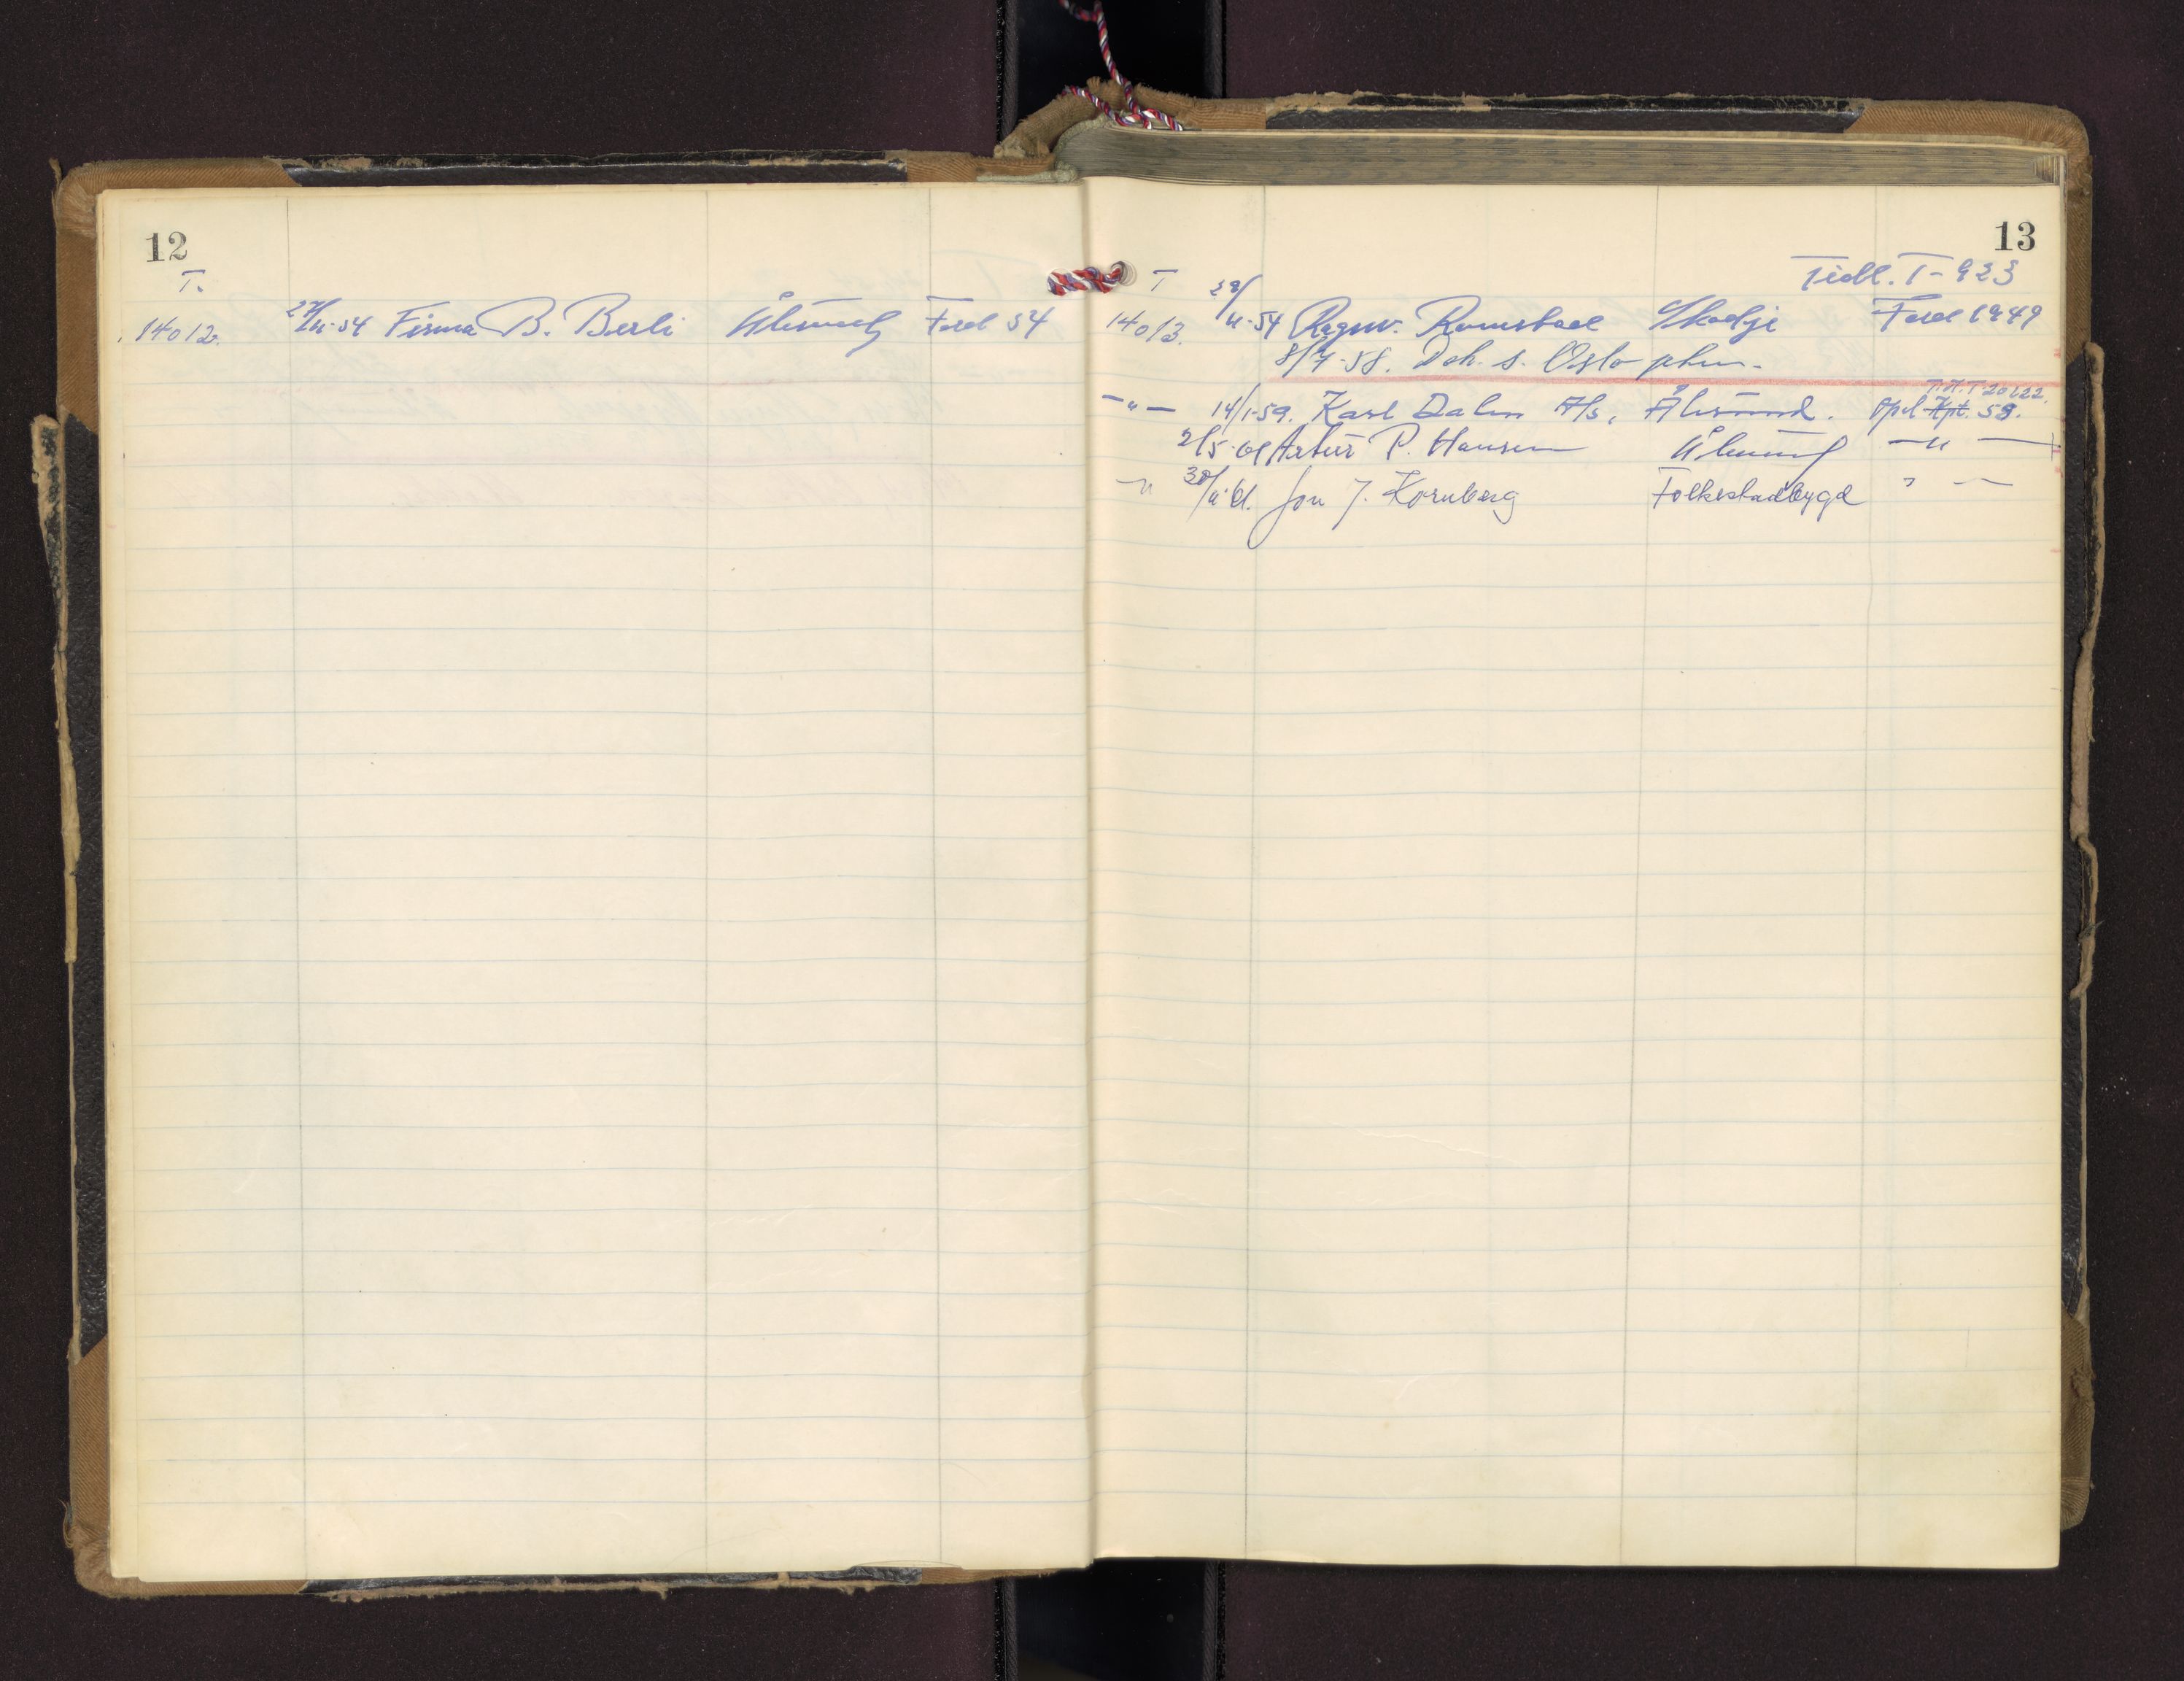 12
T.
14012. 27/11-54 Firma B. Berli Ålesund Ford 54
13
Tidl. T-923
T
14013. 29/11-54 Ragnv. Ramstad Skodje Ford 1949
8/7-58. Deh. s. Oslo phm.
T.H.T 20122.
-"- 14/1-59. Karl Dahn A/s, Ålesund. Opel Kpt. 58.
2/5-61 Artur P. Hansen Ålesund -"-
-" 30/11-61. Jon J. Kornberg Folkestadbygd " -